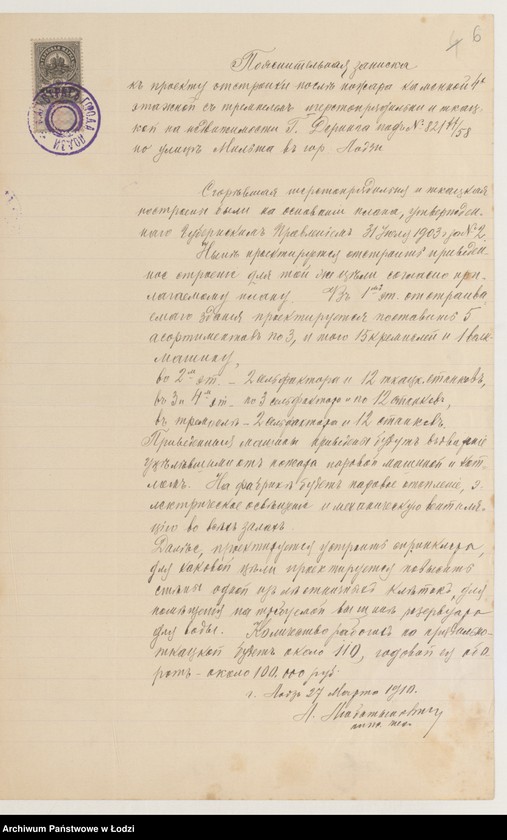 4 6
Пояснительная записка
къ проекту отстройки послѣ пожара каменной 4х
этажной съ тремпелемъ шерстопрядильни и ткац-
кой на недвижимости Г. Дорнаго подъ № 821 /58
по улицѣ Мильша въ гор. Лодзи
Сгорѣвшая шерстопрядильня и ткацкая
построены были на основаніи плана, утвержден-
наго Губернскимъ Правленіемъ 31 Іюля 1903 г. за №
Нынѣ проектируется отстроить приведен-
ное строеніе для той же цѣли согласно при-
лагаемому плану. Въ 1мъ эт. отстраива-
емаго зданія проектируется поставить 5
асортиментовъ по 3, итого 15 кремпелей и 1 волк-
машину,
во 2мъ эт. – 2 сельфактора и 12 ткацк. станковъ,
въ 3 и 4мъ эт. по 3 сельфактора и по 12 станковъ,
въ тремпелѣ – 2 сельфактора и 12 станковъ.
Приведенныя машины приводимы будутъ
уцѣлѣвшими отъ пожара паровой машиной и кот-
ломъ. На фабрикѣ будетъ паровое отопленіе, э-
лектрическое освѣщеніе и механическую вентиля-
цію во всѣхъ залахъ.
Далѣе, проектируется устроить спринклера,
для каковой цѣли проектируется повысить
стѣны одной изъ лѣстничныхъ клѣтокъ для
помѣщенія на требуемой вышинѣ резервуара
для воды. Количество рабочихъ на прядильно-
ткацкой будетъ около 110, годовой ея обо-
ротъ – около 100.000 руб.
г. Лодзь 27 Марта 1910.
Archiwum Państwowe w Łodzi